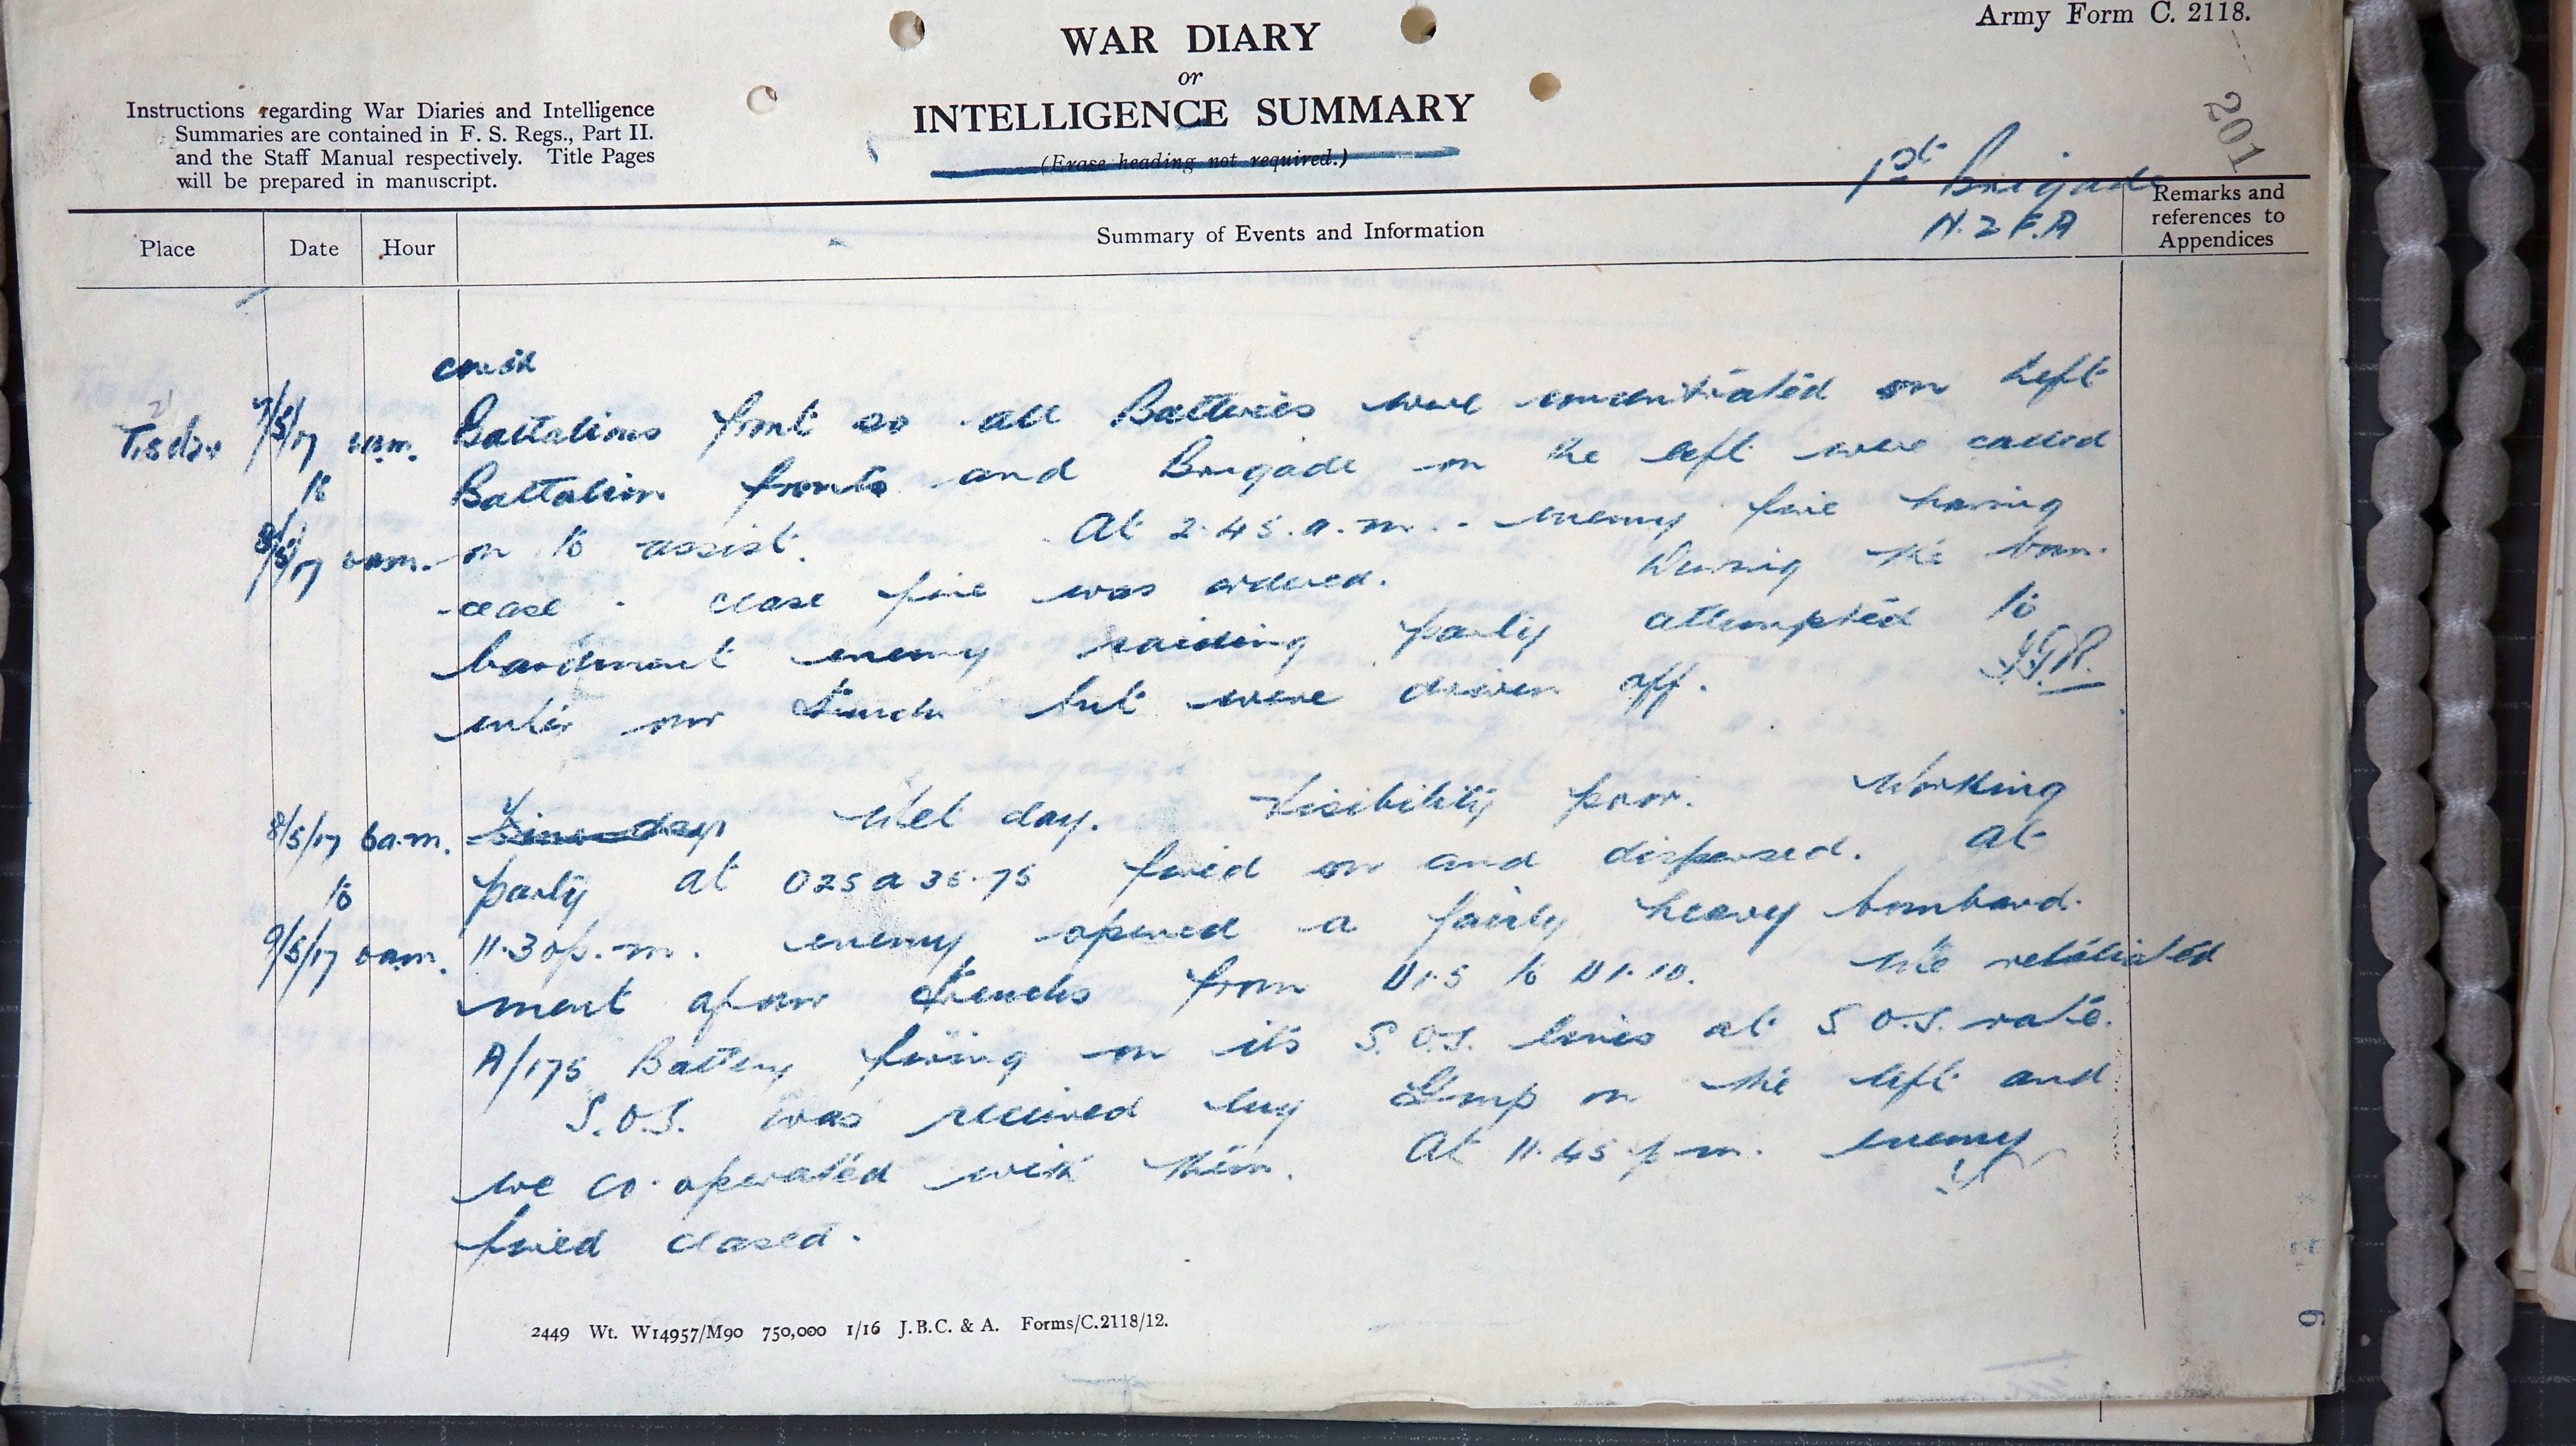 Army Form C. 2118.
WAR DIARY
or
INTELLIGENCE SUMMARY
(Erase heading not required.)
Instructions regarding War Diaries and Intelligence
Summaries are contained in F. S. Regs., Part II.
and the Staff Manual respectively. Title Pages
will be prepared in manuscript.
201
1st Brigade
N.Z F.A
Place
Date
Hour
Summary of Events and Information
Remarks and
references to
Appendices
7/5/17 Battalions front so all Batteries were concentrated on Left
to Battalion fronts and Brigade on the left were called
8/5/17 on to assist. At 2.45.a.m. enemy fire having
cease. cease fire was ordered. During the bom-
bardment enemy raiding party attempted to
enter our trench but were driven off.
8/5/17 6a.m. Fine day Wet day. Visibility poor. Working
to party at O25a35.75 fired on and dispersed. At
9/5/17 11.30p.m. enemy opened a fairly heavy bombard-
ment of our trenchs from U1.5 to U1.10. We retaliated
A/175 Battery firing on its S.O.S. lines at S.O.S. rate.
S.O.S. was received by Group on the left and
we co-operated with them. At 11.45 p.m. enemy
fired ceased.
2449 Wt. W14957/M90 750,000 1/16 J.B.C. & A. Forms/C.2118/12.